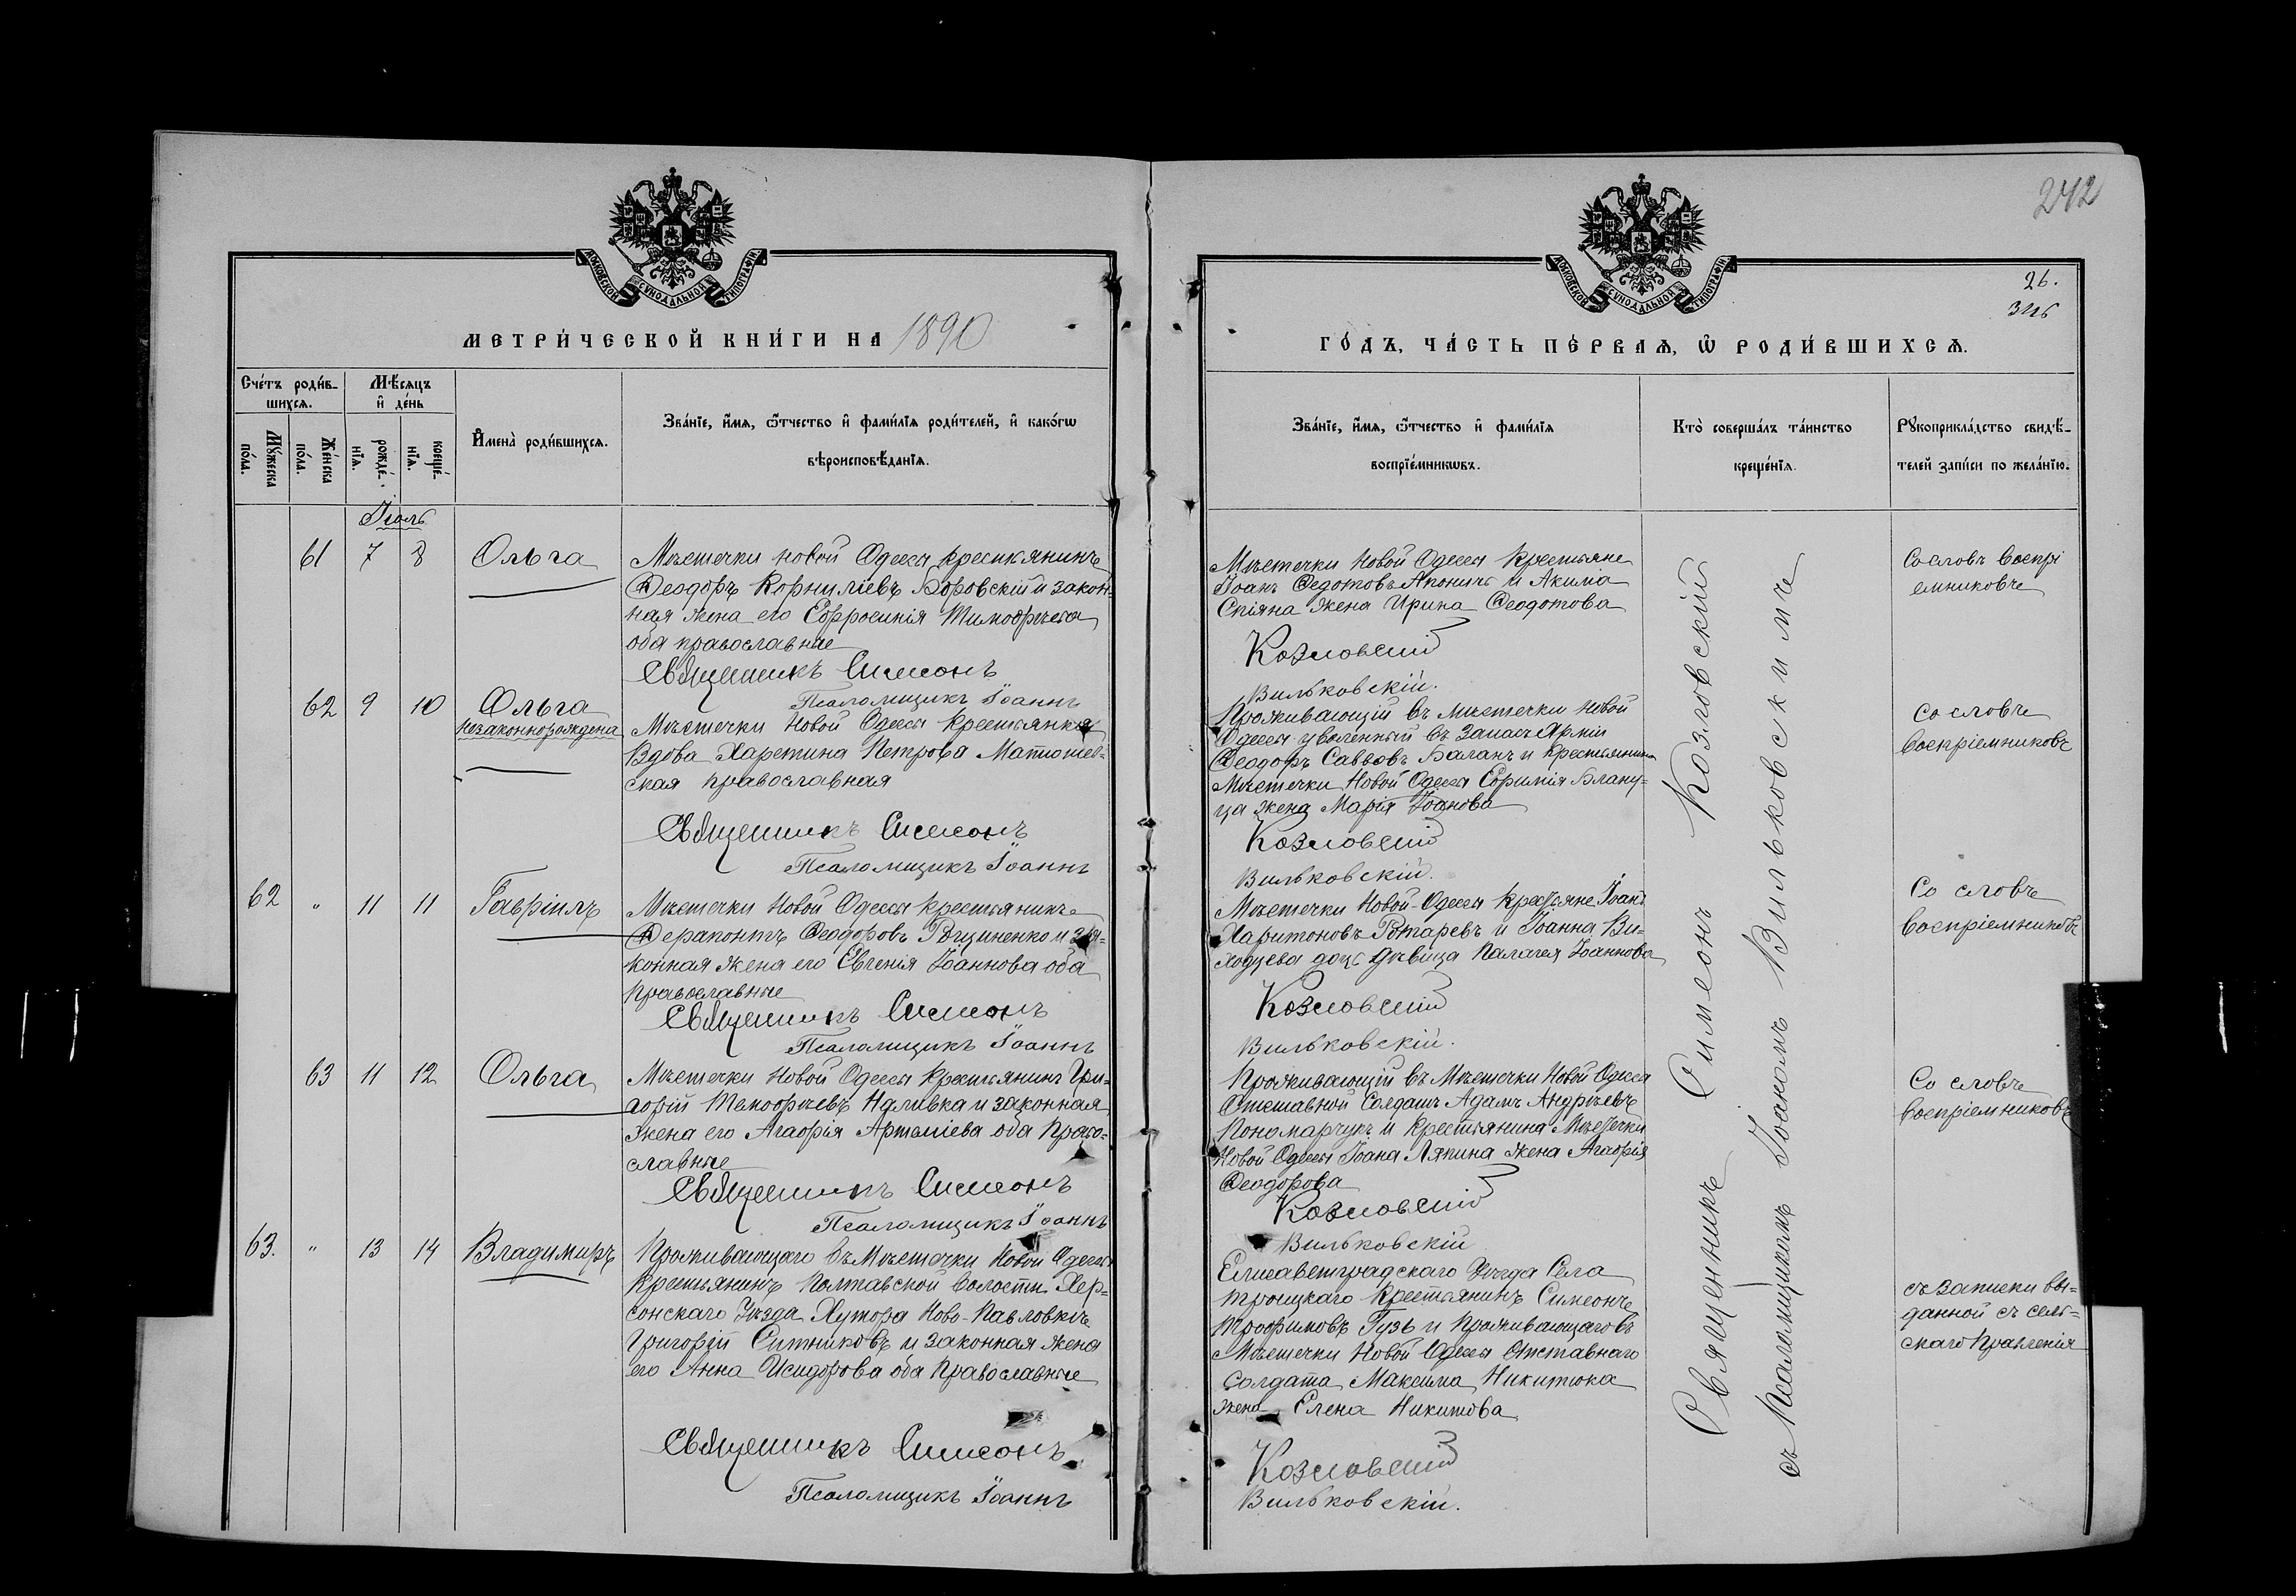 242
МОСКОВСКОЙ СѴНОДАЛЬНОЙ ТИПОГРАФІИ
МОСКОВСКОЙ СѴНОДАЛЬНОЙ ТИПОГРАФІИ
26.
МЕТРИ́ЧЕСКОЙ КНИ́ГИ НА 1890
ГО́ДЪ, ЧА́СТЬ ПЕ́РВАѦ, Ѡ҆ РОДИ́ВШИХСѦ.
Сче́тъ роди́в-
шихсѧ.
Мѣ́сѧцъ
и҆ де́нь
Мꙋ́жеска
по́ла.
Же́нска
по́ла.
рожде́-
нїѧ.
креще́-
нїѧ.
И҆мена̀ роди́вшихсѧ.
Зва́нїе, и҆́мѧ, ѻ҆́тчество и҆ фами́лїѧ роди́телей, и҆ како́гѡ
вѣроисповѣ́данїѧ.
Зва́нїе, и҆́мѧ, ѻ҆́тчество и҆ фами́лїѧ
воспрїе́мникѡвъ.
Кто̀ соверша́лъ та́инство
креще́нїѧ.
Рꙋкоприкла́дство свидѣ́-
телей за́писи по жела́нїю.
Іюль
61 7 8 Ольга
Мѣстечки Новой Одессы крестьянинъ
Ѳеодоръ Корниліевъ Боровскій и закон-
ная жена его Евфросинія Тимоѳѣева
оба православные
Священникъ Симеонъ
Псаломщикъ Іоаннъ
Мѣстечки Новой Одессы крестьяне
Іоанъ Ѳедотовъ и Акима
жена Ирина Ѳеодотова
Козловскій
Вильковскій.
Со словъ воспрі
емниковъ
62 9 10 Ольга
незаконнорождена
Мѣстечки Новой Одессы крестьянка
Вдова Харетина Петрова
ская православная
Священникъ Симеонъ
Псаломщикъ Іоаннъ
Проживающій въ мѣстечки Новой
Одессы уволенный въ Запасъ Арміи
Ѳеодоръ Саввовъ Баланъ и крестьянина
Мѣстечки Новой Одессы Ефимія Блану-
ца жена Марія Іоанова
Козловскій
Вильковскій.
Со словъ
воспріемниковъ
62 " 11 11 Гавріилъ
Мѣстечки Новой Одессы крестьянинъ
Ѳерапонтъ Ѳеодоровъ и за-
конная жена его Евгенія Іоаннова оба
православные
Священникъ Симеонъ
Псаломщикъ Іоаннъ
Мѣстечки Новой-Одессы Крестьяне Іоанъ
Харитоновъ Ротаревъ и Іоанна Ви-
ходцева дочь дѣвица Палагея Іоаннова
Козловскій
Вильковскій.
Со словъ
воспріемниковъ
63 11 12 Ольга
Мѣстечки Новой Одессы крестьянинъ Гри-
горій Темоѳѣевъ Наливка и законная
жена его Агаѳія Артеміева оба право-
славные
Священникъ Симеонъ
Псаломщикъ Іоаннъ
Проживающій въ Мѣстечки Новой Одесса
Отставной Солдатъ Адамъ Андрѣевъ
Пономарчукъ и Крестьянина Мѣстечки
Новой Одессы Іоана Ляпина жена Агаѳія
Ѳеодорова
Козловскій
Вильковскій
Со словъ
воспріемниковъ
63. " 13 14 Владимиръ
Проживающаго въ Мѣстечки Новой Одессы
Крестьянинъ Полтавской Волости Хер-
сонскаго Уѣзда Хутора Ново-Павловкіъ
Григорій Ситниковъ и законная жена
его Анна Исидорова оба Православные
Священникъ Симеонъ
Псаломщикъ Іоаннъ
Елисаветградскаго Уѣзда Села
Троицкаго Крестьянинъ Симеонъ
Трофимовъ Гузь и Проживающаго въ
Мѣстечки Новой Одессы Отставнаго
солдата Максима Никитюка
жена Елена Никитова
Козловскій
Вильковскій.
съ записки вы-
данной съ сель-
скаго Правленія
Священникъ Симеонъ Козловскій
съ Псаломщикомъ Іоаномъ Вильковскимъ